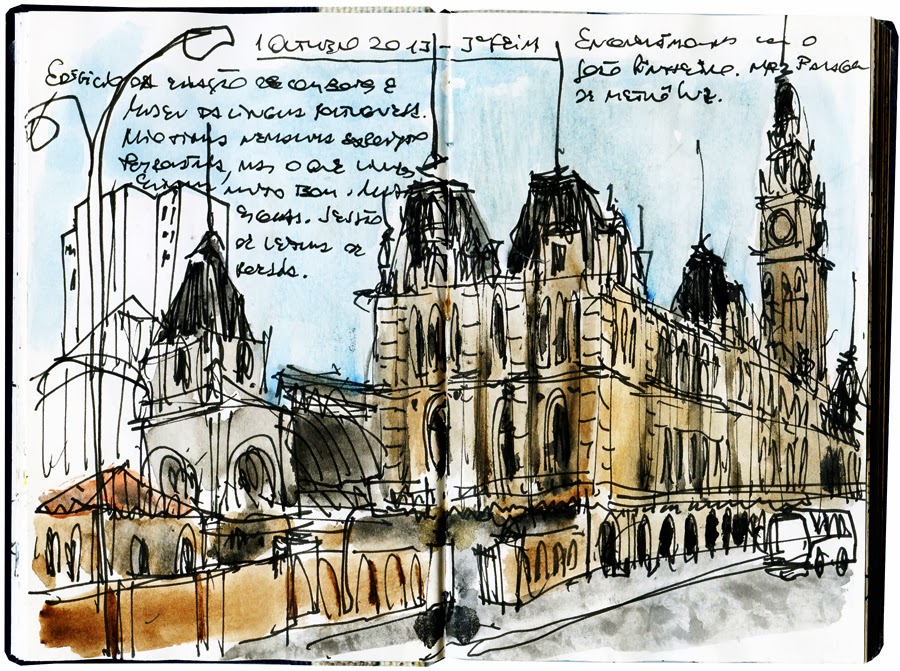 1 OUTUBRO 2013 - 3ªFEIRA
EDIFICIO DA ESTAÇÃO DE COMBOIO E
MUSEU DA LINGUA PORTUGUESA.
NÃO TINHA NENHUMA EXPOSIÇÃO
MAS O QUE VIMOS
MUITO BOM. MUITAS
ESCOLAS. SESSÃO
DE LEITURA DE
POESIA.
ENCONTRÁMO-NOS COM O
JOÃO PINHEIRO. NA PARAGEM
DE METRÔ LUZ.